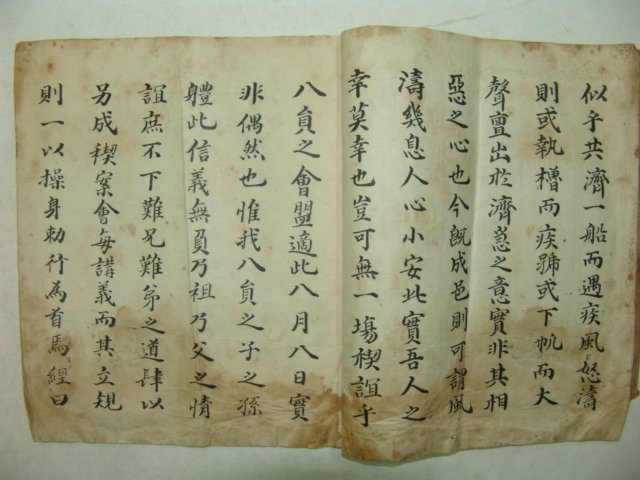 似乎共濟一船而遇疾風怒濤
則或執櫓而疾號或下帆而大
聲亶出於濟急之意實非其相
惡之心也今旣成邑則可謂風
濤幾息人心小安此實吾人之
幸莫幸也豈可無一場稧誼乎
八員之會盟適此八月八日實
非偶然也惟我八員之子之孫
軆此信義無負乃祖乃父之情
誼庶不下難兄難弟之道肆以
另成稧案會每講義而其立規
則一以操身勑行為首焉經曰